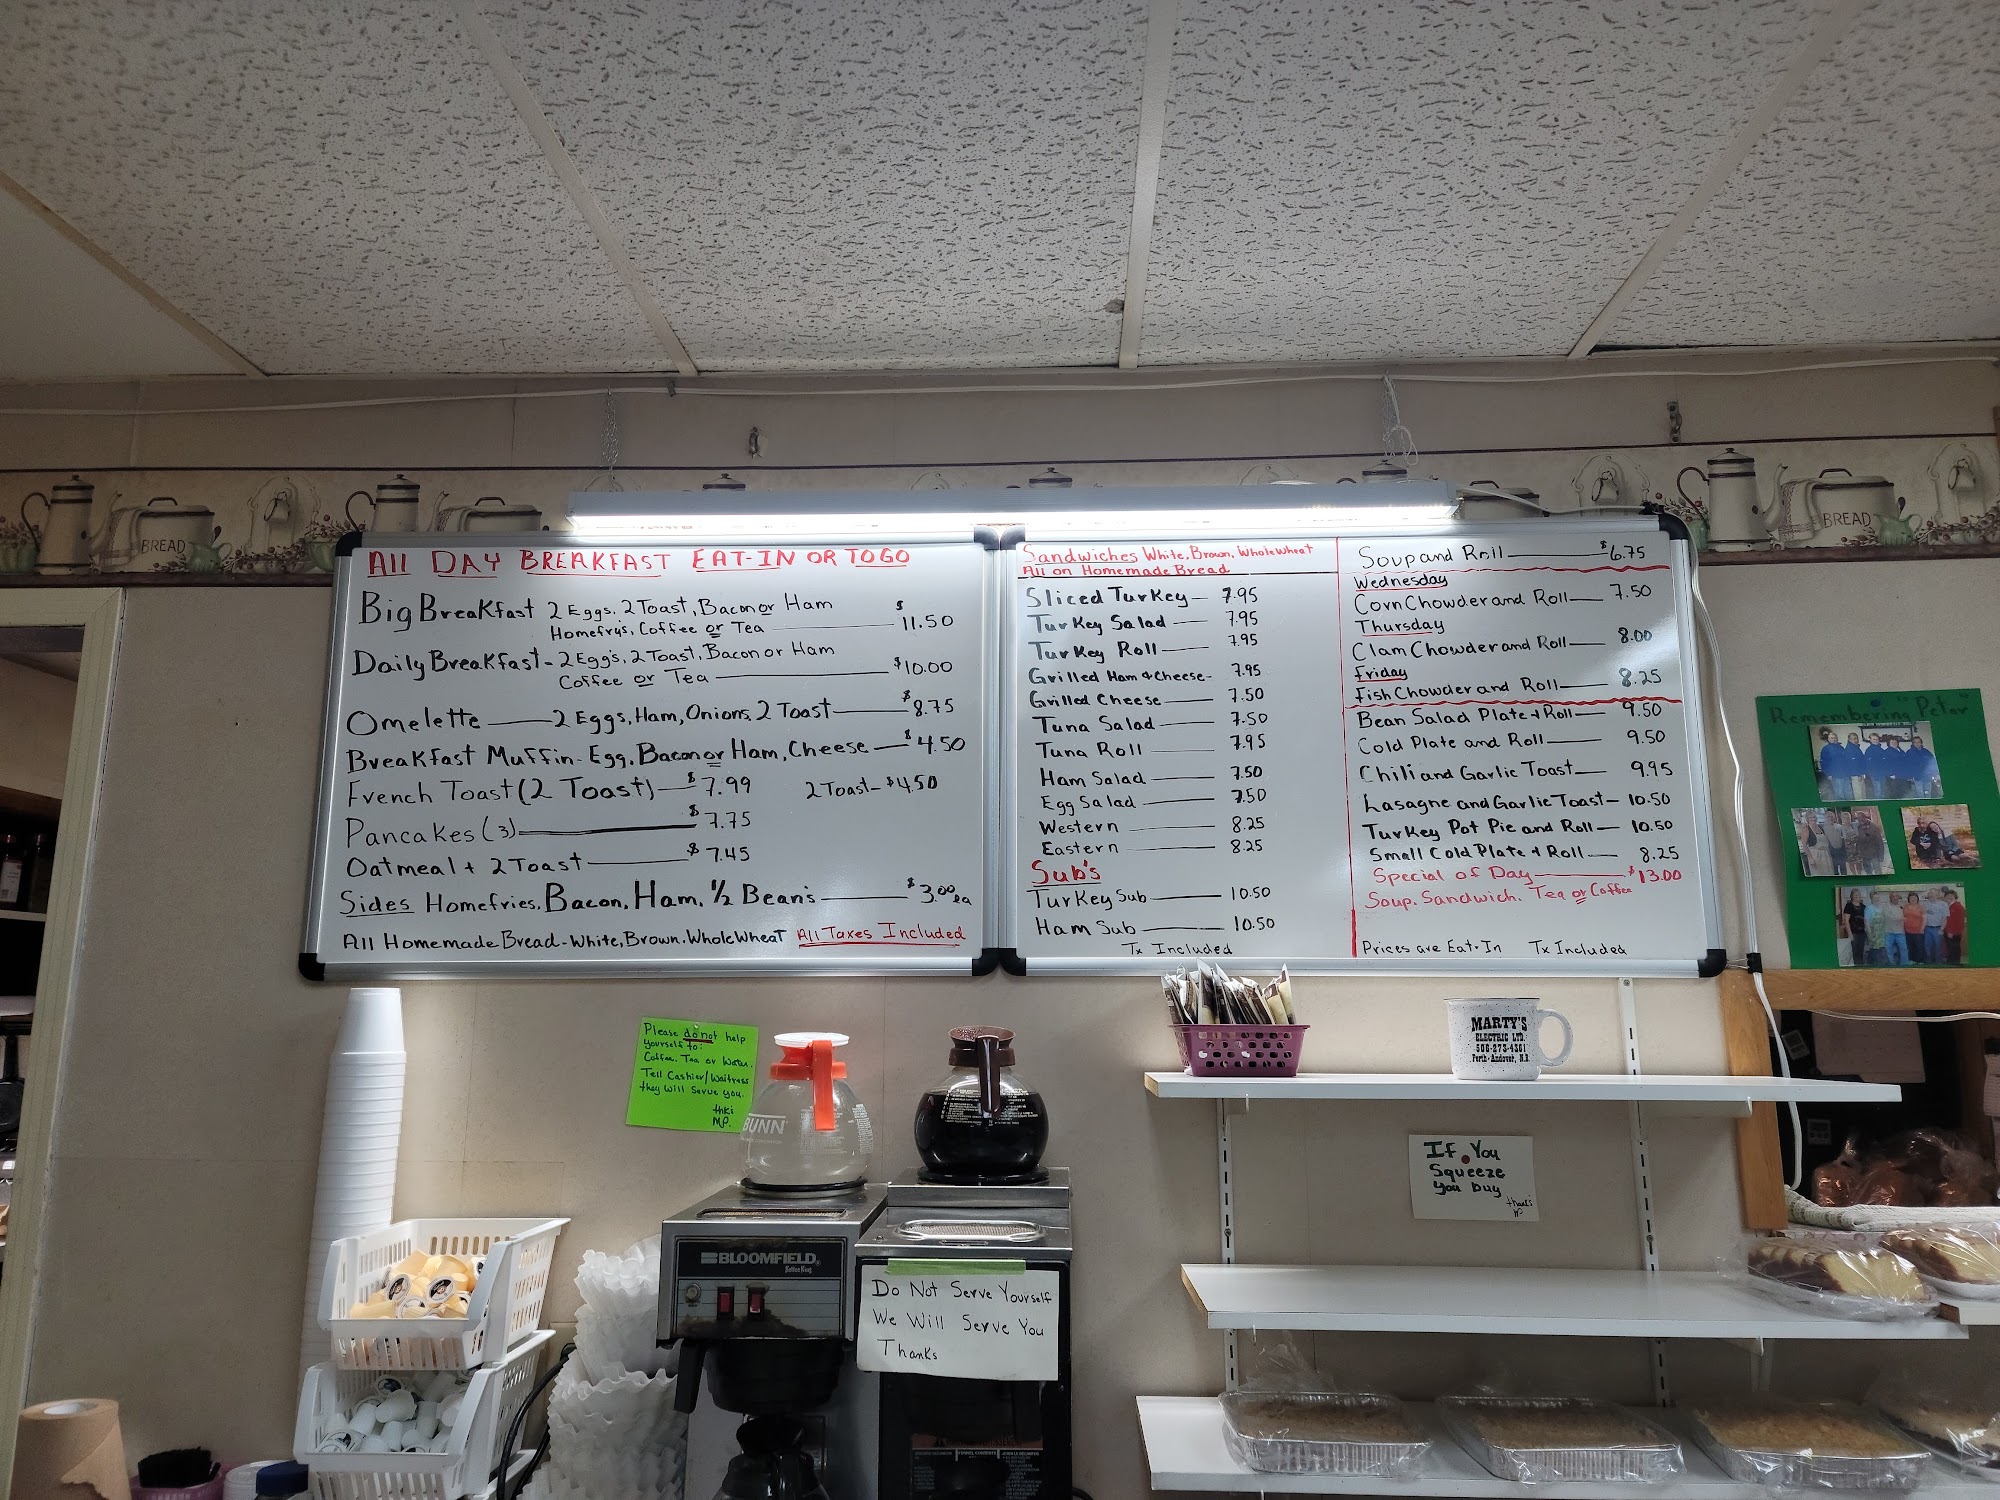 BREAD
BREAD
All DAY BREAKFAST EAT-IN OR TO GO
Big Breakfast 2 Eggs, 2 Toast, Bacon or Ham
Homefry's, Coffee or Tea $11.50
Daily Breakfast - 2 Egg's, 2 Toast, Bacon or Ham
Coffee or Tea $10.00
Omelette 2 Eggs, Ham, Onions, 2 Toast $8.75
Breakfast Muffin - Egg, Bacon or Ham, Cheese $4.50
French Toast (2 Toast) $7.99 2 Toast - $4.50
Pancakes (3) $7.75
Oatmeal + 2 Toast $7.45
Sides Homefries, Bacon, Ham, ½ Bean's $3.00 ea
All Homemade Bread - White, Brown, Whole Wheat All Taxes Included
Sandwiches White, Brown, Whole Wheat
All on Homemade Bread
Sliced Turkey 7.95
Turkey Salad 7.95
Turkey Roll 7.95
Grilled Ham & Cheese 7.95
Grilled Cheese 7.50
Tuna Salad 7.50
Tuna Roll 7.95
Ham Salad 7.50
Egg Salad 7.50
Western 8.25
Eastern 8.25
Sub's
Turkey Sub 10.50
Ham Sub 10.50
Tx Included
Soup and Roll $6.75
Wednesday
Corn Chowder and Roll 7.50
Thursday
Clam Chowder and Roll 8.00
Friday
Fish Chowder and Roll 8.25
Bean Salad Plate + Roll 9.50
Cold Plate and Roll 9.50
Chili and Garlic Toast 9.95
Lasagne and Garlic Toast 10.50
Turkey Pot Pie and Roll 10.50
Small Cold Plate + Roll 8.25
Special of Day $13.00
Soup, Sandwich, Tea or Coffee
Prices are Eat-In Tx Included
Remembering "Peter"
Please do not help
yourself to:
Coffee, Tea or Water.
Tell Cashier/Waitress
they will serve you.
thks
MP.
BUNN
MARTY'S
ELECTRIC LTD.
506-273-4361
Perth-Andover, N.B.
If You
Squeeze
you buy
thank's
MP
BLOOMFIELD
Koffee King
Do Not Serve Yourself
We Will Serve You
Thanks